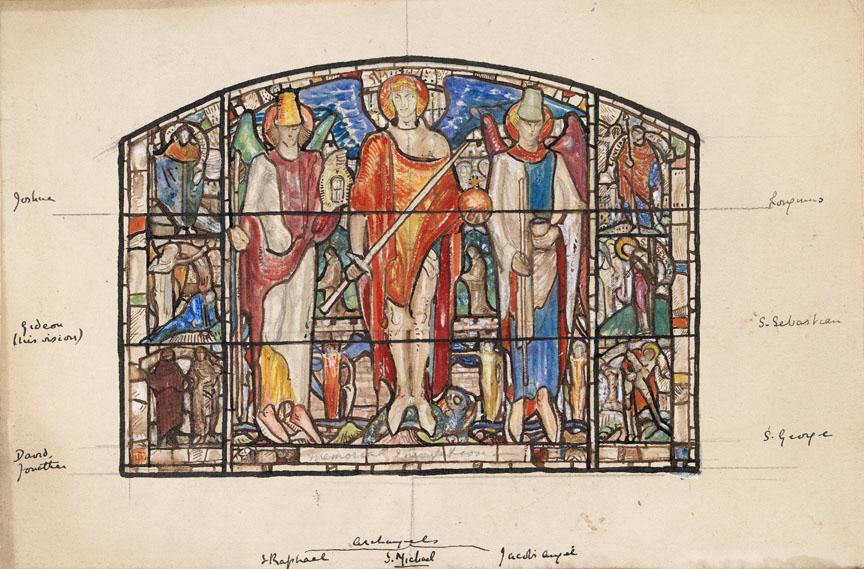 Joshua
Longinus
Gideon
(his vision)
S. Sebastian
David,
Jonathan
S. George
memorial Inscription
Archangels
S Raphael
S. Michael
Jacob's angel